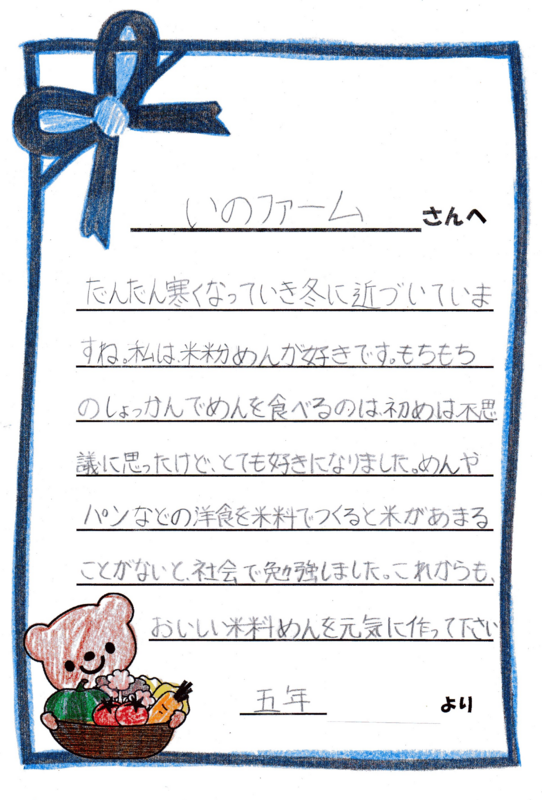 いのファーム さんへ
だんだん寒くなっていき冬に近づいていま
すね。私は、米粉めんが好きです。もちもち
のしょっかんでめんを食べるのは、初めは不思
議に思ったけど、とても好きになりました。めんや
パンなどの洋食を米料でつくると米があまる
ことがないと、社会で勉強しました。これからも、
おいしい米料めんを元気に作って下さい
五年 より